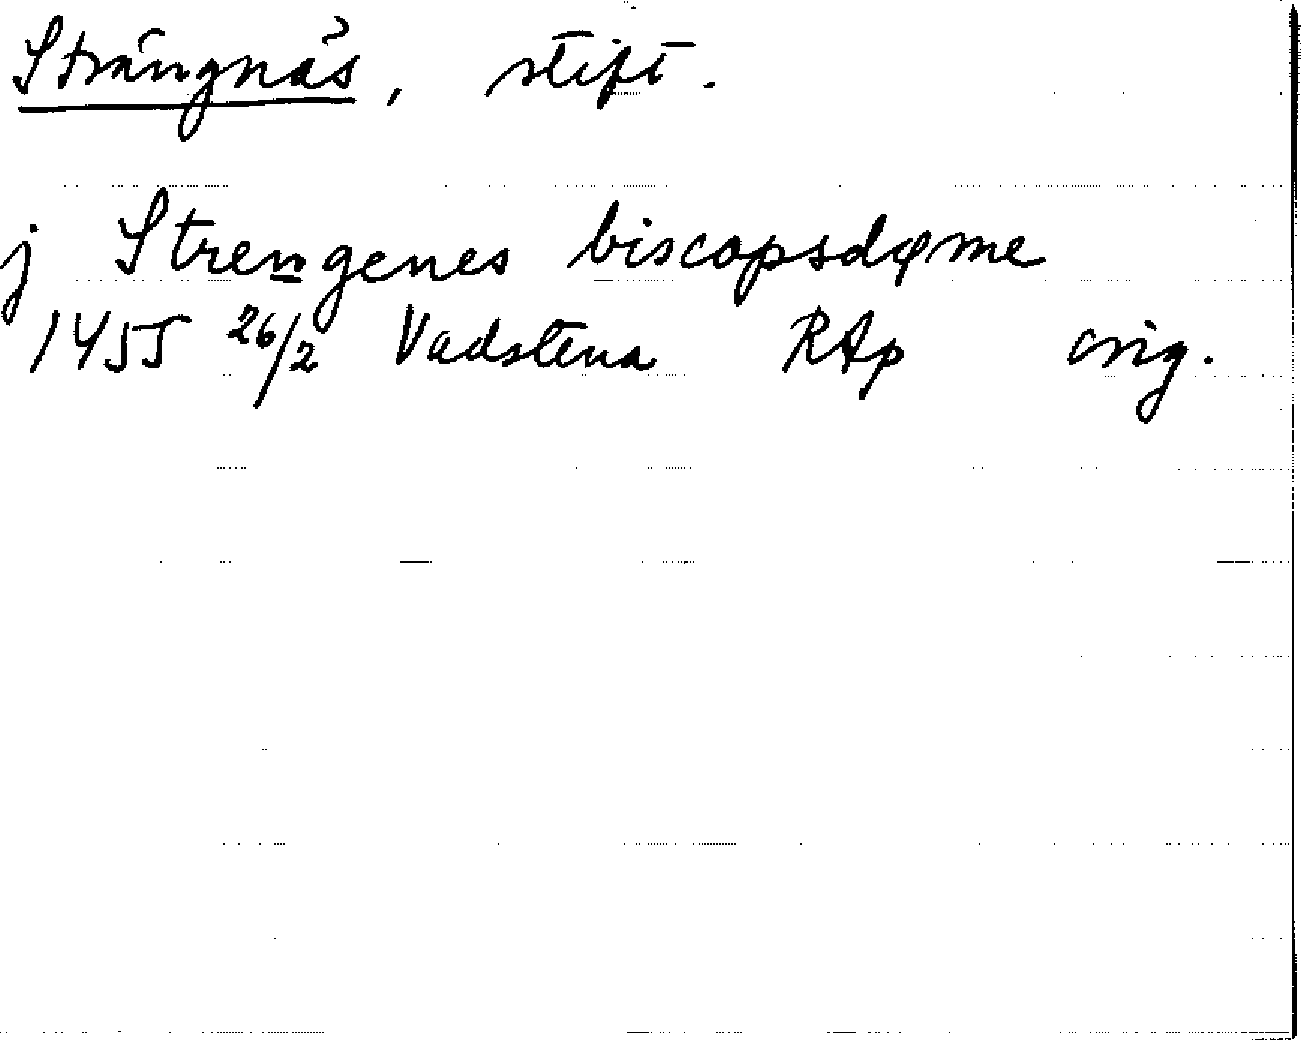 Strängnäs, stift.
j Strengenes biscopsdøme
1455 26/2 Vadstena RAp orig.